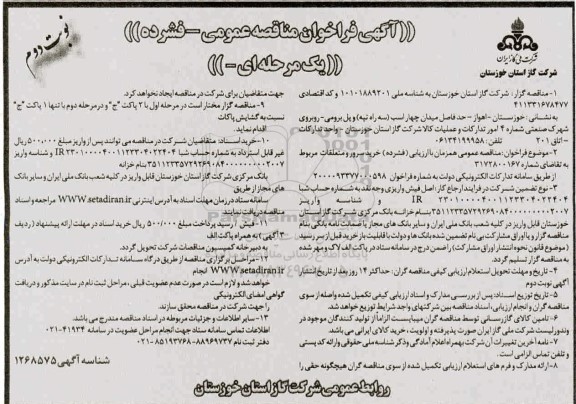 ((آگهی فراخوان مناقصه عمومی – فشرده))
((یک مرحله ای -))
نوبت دوم
شرکت ملی گاز ایران
شرکت گاز استان خوزستان
۱-مناقصه گزار: شرکت گاز استان خوزستان به شناسه ملی ۱۰۱۰۱۸۸۹۲۰۱ و کد اقتصادی
۴۱۱۳۳۱۶۷۸۴۷۷
به نشانی: خوزستان – اهواز – حد فاصل میدان چهار اسب (سه راه تپه) و پل بروومی- روبروی
شهرک صنعتی شماره ۴ امور تدارکات و عملیات کالا شرکت گاز استان خوزستان – واحد تدارکات
– اتاق ۲۰۱ تلفن: ۰۶۱۳۴۱۹۹۹۵۸
۲-موضوع فراخوان: مناقصه عمومی همزمان با ارزیابی (فشرده) خرید سرور و متعلقات مربوط
به تقاضای شماره ۳۱۷۲۸۰۰۱۶۷
از طریق سامانه تدارکات الکترونیکی دولت به شماره فراخوان ۲۰۰۰۰۹۳۳۷۷۰۰۰۵۹۸
۳-نوع تضمین شرکت در فرایند ارجاع کار: اصل فیش واریزی وجه نقد به شماره حساب شبا
IR ۲۳۰۱۰۰۰۰۴۰۰۱۱۲۳۰۴۰۲۲۴۰۴ و شناسه واریز
۳۵۱۱۲۳۳۵۷۲۹۲۶۹۰۸۴۰۰۰۰۰۰۰۰۰۰۲۰۰۷ بنام خزانه بانک مرکزی شرکت گاز استان
خوزستان قابل واریز در کلیه شعب بانک ملی ایران و سایر بانک های مجاز یا ضمانت نامه بانکی بنام
مناقصه گزار و یا اوراق مشارکت بی نام تضمین شده بانک ها و دولت با قابلیت باز خرید قبل از سررسید
(موضوع قانون نحوه انتشار اوراق مشارکت) را ضمن درج در سامانه ستاد در پاکت الف لاک و مهر شده
به مناقصه گزار تسلیم گردد.
۴-تاریخ و مهلت تحویل استعلام ارزیابی کیفی مناقصه گران: حداکثر ۱۴ روز بعد از تاریخ انتشار
آگهی نوبت دوم
۵-تاریخ توزیع اسناد: پس از بررسی مدارک و اسناد ارزیابی کیفی تکمیل شده واصله از سوی
مناقصه گران و انجام ارزیابی، اسناد مناقصه بین شرکتهای واجد شرایط توزیع خواهد شد.
۶-تامین کالای گازرسانی توسط مناقصه گران میبایست الزاماً از تولید کنندگان موجود در
وندور لیست شرکت ملی گاز ایران صورت پذیرفته و اولویت، خرید کالای ایرانی می باشد.
۷-نامه آخرین تغییرات آن بهمراه اعلام آمادگی و ذکر شناسه ملی حقوقی و ارائه کد پستی
و تلفن تماس الزامی است.
۸-ارائه مدارک و فرم های استعلام ارزیابی تکمیل شده از سوی مناقصه گران هیچگونه حقی را
جهت متقاضیان برای شرکت در مناقصه ایجاد نخواهد کرد.
۹-مناقصه گزار مختار است در مرحله اول با ۲ پاکت "ج" و در مرحله دوم با تنها ۱ پاکت "ج"
نسبت به گشایش پاکات
اقدام نماید.
۱۰-خرید اسناد: متقاضیان شرکت در مناقصه می توانند پس از واریز مبلغ ۵۰۰,۰۰۰ ریال
غیر قابل استرداد به شماره حساب شبا IR ۲۳۰۱۰۰۰۰۴۰۰۱۱۲۳۰۴۰۲۲۴۰۴ و شناسه واریز
۳۵۱۱۲۳۳۵۷۲۹۲۶۹۰۸۴۰۰۰۰۰۰۰۰۰۰۲۰۰۷ بنام خزانه
بانک مرکزی شرکت گاز استان خوزستان قابل واریز در کلیه شعب بانک ملی ایران و سایر بانک
های مجاز از طریق
سامانه ستاد در زمان مهلت اسناد به آدرس اینترنتی WWW.setadiran.ir مراجعه و اسناد
مناقصه دریافت نمایند.
فیش / رسید پرداخت مبلغ ۵۰۰/۰۰۰ ریال خرید اسناد در مهلت ارائه پیشنهاد (ردیف
۳ آگهی) به همراه پاکت الف
به دبیرخانه کمیسیون مناقصات شرکت تحویل گردد.
۱۲-مراحل برگزاری مناقصه از طریق درگاه سامانه تدارکات الکترونیکی دولت به آدرس
WWW.setadiran.ir انجام
خواهد شد و لازم است در صورت عدم عضویت قبلی، مراحل ثبت نام در سایت مذکور و دریافت
گواهی امضای الکترونیکی
را جهت شرکت در مناقصه محقق سازند.
۱۳-سایر اطلاعات و جزئیات مربوطه در اسناد مناقصه مندرج می باشد.
اطلاعات تماس سامانه ستاد جهت انجام مراحل عضویت در سامانه ۴۱۹۳۴-۰۲۱
دفتر ثبت نام ۸۸۹۶۹۷۳۷ – ۸۵۱۹۳۷۶۸-۰۲۱
شناسه آگهی ۱۲۶۸۵۷۵
روابط عمومی شرکت گاز استان خوزستان